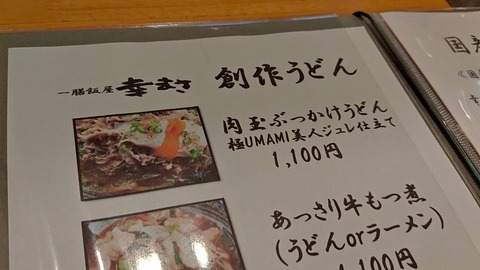 一膳飯屋 幸まさ 創作うどん
肉玉ぶっかけうどん
極UMAMI美人ジュレ仕立て
1,100円
あっさり牛もつ煮
(うどんorラーメン)
1,100円
国産